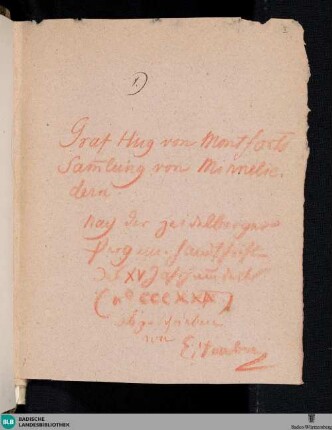 1)
Graf Hug von Montforts
Samlung von Minnelie-
dern
nach der Heidelberger
Pergam. Handschrift
des XV Jahrhunderts
(n° CCCXXIX)
abgeschrieben
von
BLB BADISCHE
LANDESBIBLIOTHEK
Baden-Württemberg